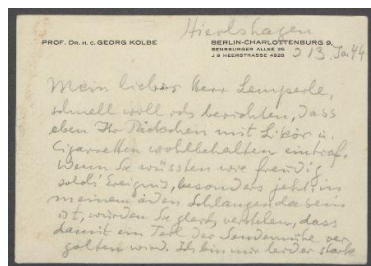 Hierlshagen
PROF. DR. H. C. GEORG KOLBE
BERLIN-CHARLOTTENBURG 9,
SENSBURGER ALLEE 26
J 9 HEERSTRASSE 4828
13. Ja. 44
Mein lieber Herr Lemperle,
schnell will ich berichten, dass
eben Ihr Päckchen mit Likör u.
Cigaretten wohlbehalten eintraf.
Wenn Sie wüssten wie freudig
solch' Ereignis, besonders jetzt in
meinem öden Schlangendasein
ist, würden Sie gleich verstehen, dass
damit ein Teil der Sendemühe ver
golten wird. Ich bin nur leider stark